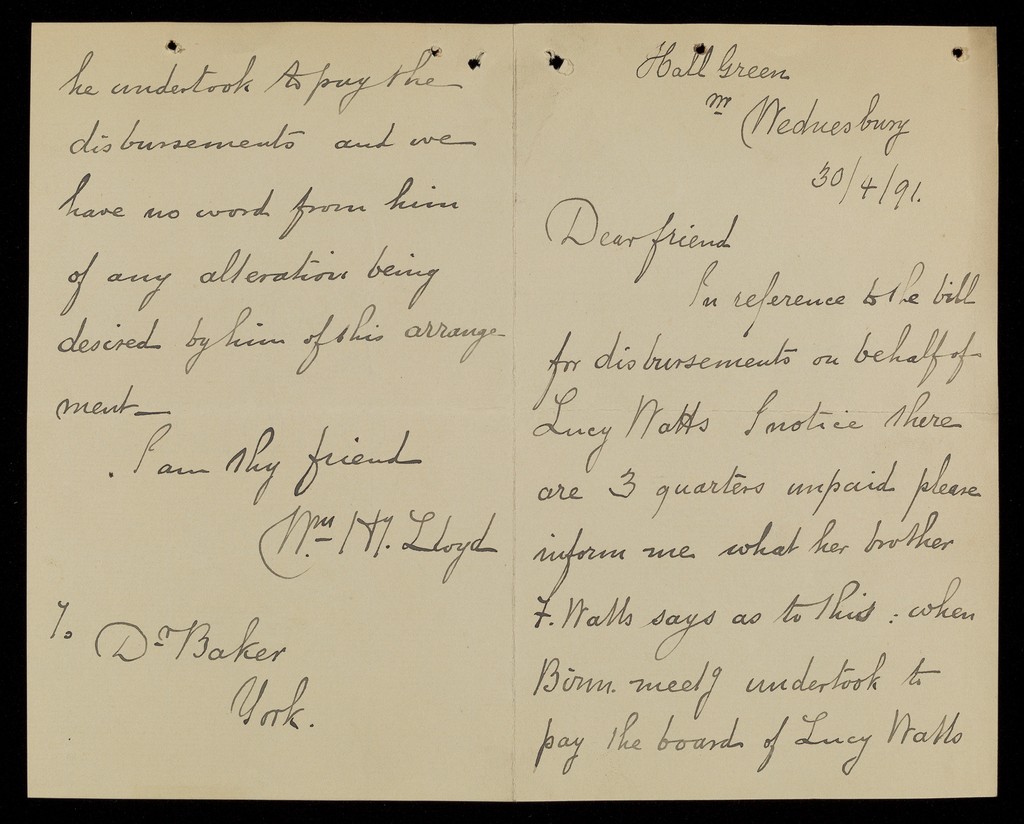 Hall Green
nr Wednesbury
30/4/91.
Dear friend
In reference to the bill
for disbursements on behalf of
Lucy Watts I notice there
are 3 quarters unpaid please
inform me what her brother
F. Watts says as to this : when
Birm. meetg undertook to
pay the board of Lucy Watts
he undertook to pay the
disbursements and we
have no word from him
of any alteration being
desired by him of this arrange-
ment—
. I am thy friend
Wm Hy. Lloyd
To
Dr Baker
York.